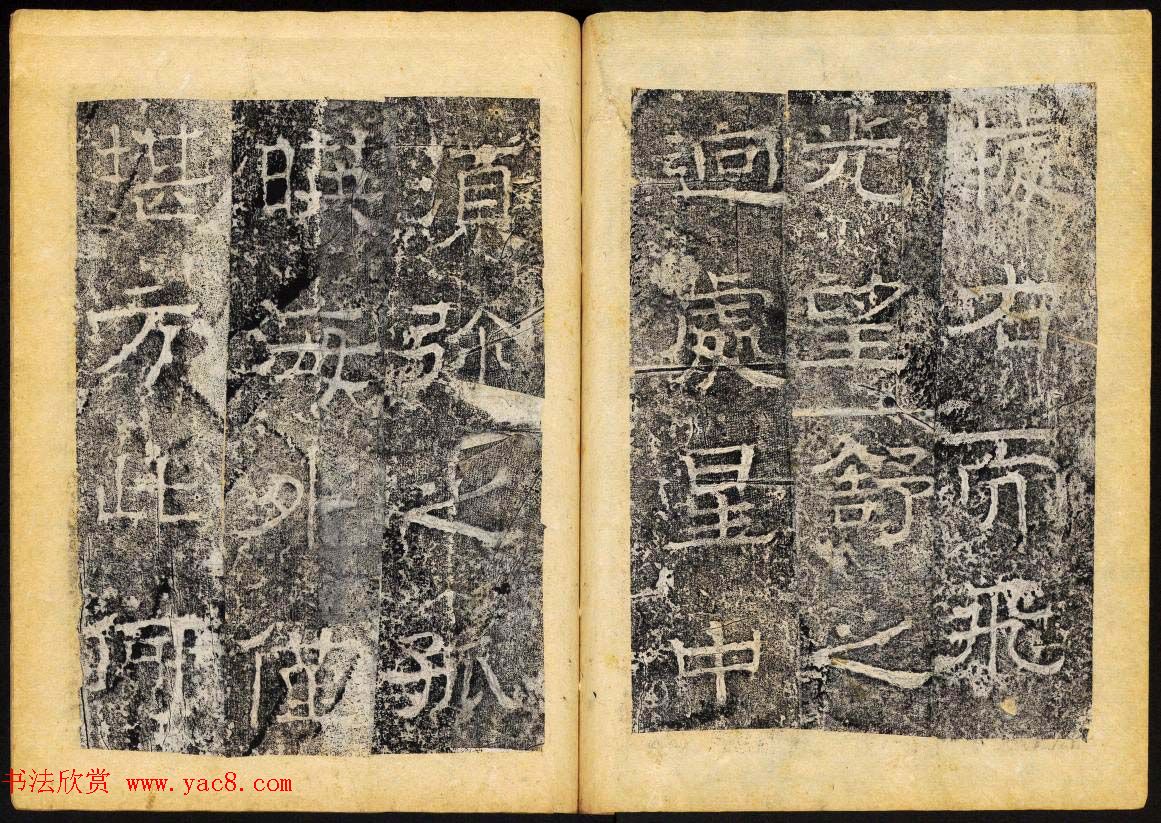 援右而飛
光望舒之
迴處星中
須弥之孤
暎海外
堪方此
书法欣赏 www.yac8.com